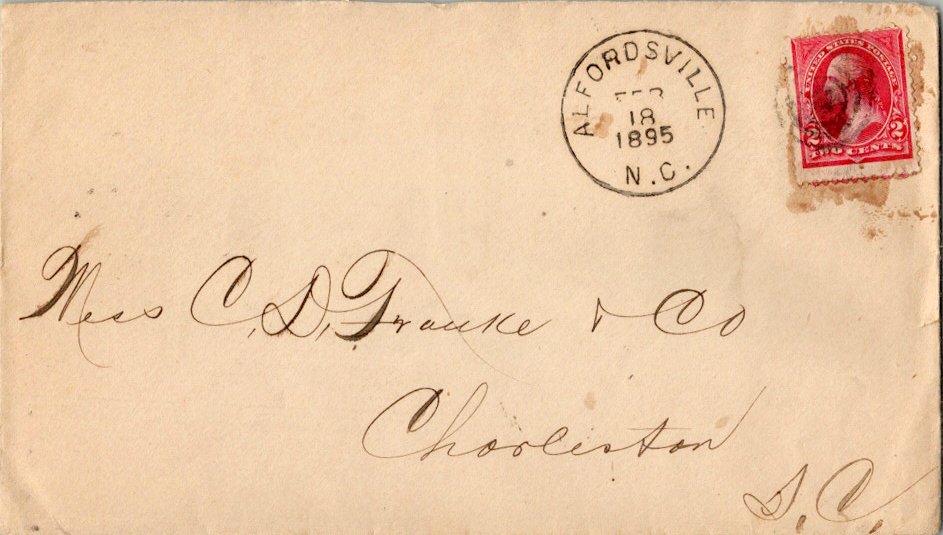 ALFORDSVILLE
FEB
18
1895
N.C.
UNITED STATES POSTAGE
2 2
TWO CENTS
Mess C. D. Franke & Co
Charleston
S. C.